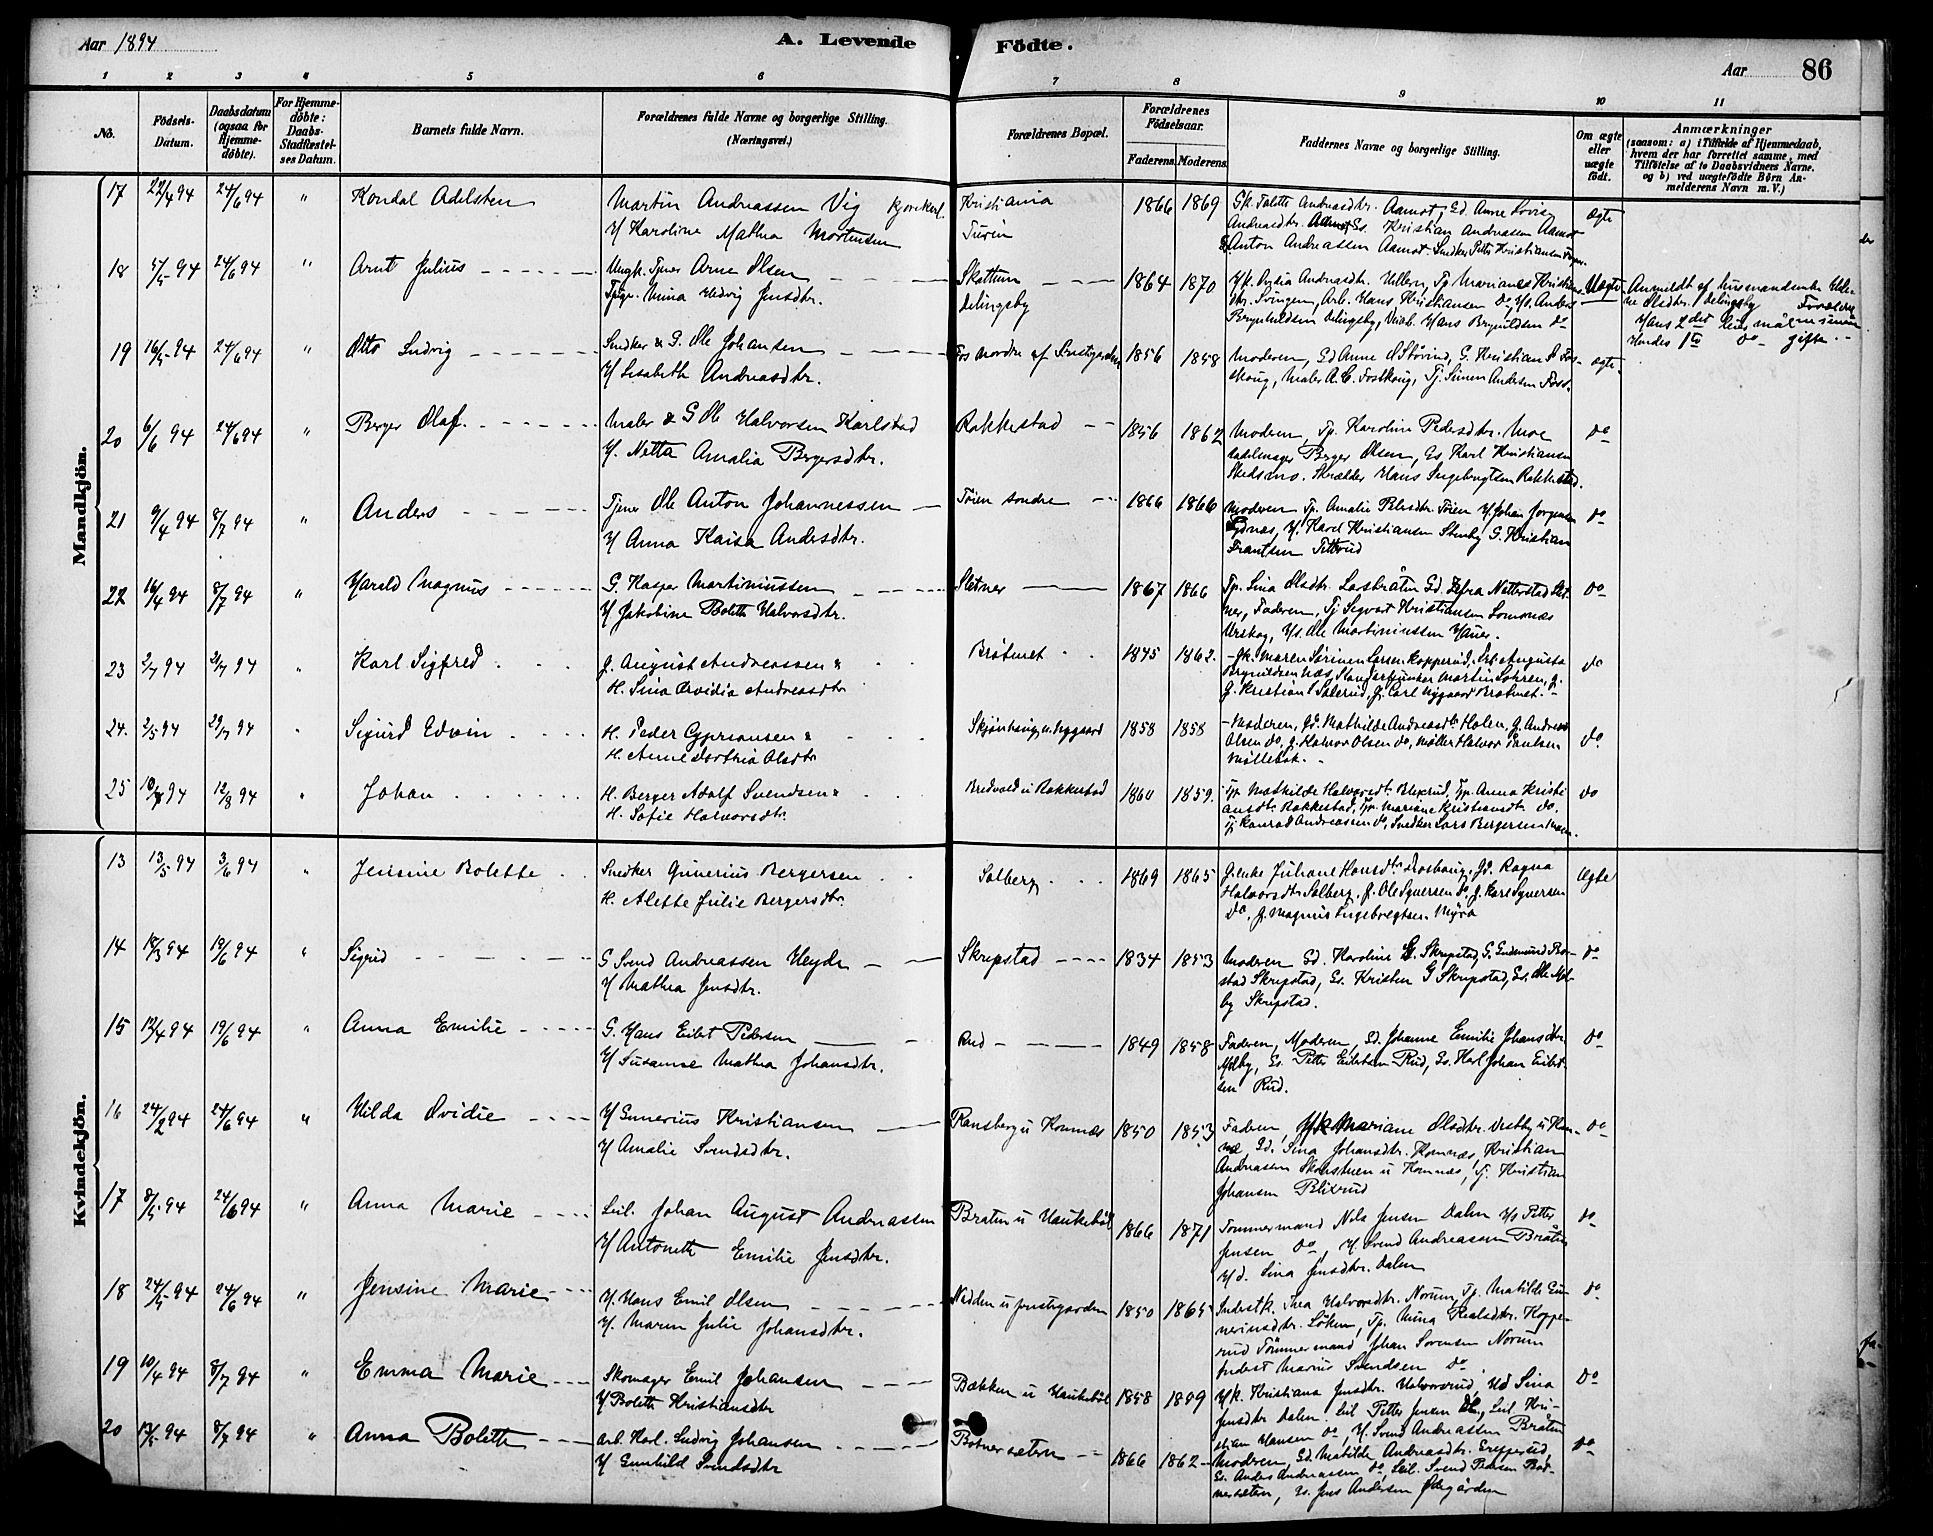 Aar 1894
A. Levende
Födte.
Aar
86
1 2 3 4 5 6 7 8 9 10 11
No.
Födsels-
Datum.
Daabsdatum
(ogsaa for
Hjemme-
döbte).
For Hjemme-
döbte:
Daabs-
Stadfæstel-
ses Datum.
Barnets fulde Navn.
Forældrenes fulde Navne og borgerlige Stilling.
(Næringsvei.)
Forældrenes Bopæl.
Forældrenes
Födselsaar.
Faderens. Moderens.
Faddernes Navne og borgerlige Stilling.
Om ægte
eller
uægte
födt.
Anmærkninger
(saasom: a) i Tilfælde af Hjemmedaab,
hvem der har forrettet samme, med
Tilföielse af to Daabsvidners Navne.
og b) ved uægtefödte Börn An-
melderens Navn m. V.)
Mandkjön.
17 22/4 94 24/6 94 " Kondal Adelsten
Martin Andreassen Vig
H Karoline Mathea Mortensen
Kristiania
1866 1869
Gk. Tolette Andreasdtr. Aamot, Gd. Anne Lovise
Andreasdtr. Aamot, Gs. Kristian Andreassen Aamot
Anton Andreassen Aamot. Snedker Petter Kristiansen
ægte
18 5/5 94 24/6 94 " Arnt Julius
Ungk. Tjener Arne Olsen
Pige. Mina Hedvig Jensdtr.
Skattum
Delingsby
1864 1870
Andrea Andreasdtr. Ullern, Tp. Mariane Kristians-
dtr. Svingen, Arb. Hans Kristiansen do, Anders
Brynhildsen Delingsby, Hans Brynildsen do
Uægte
Anmeldt af husmandsenke Hele-
ne Olsdtr. Delingsby Forældre
Hans 2det leiermål
Hendes 1te do gifte.
19 16/5 94 24/6 94 " Otto Ludvig
Snedker & G. Ole Johansen
H Lisabeth Andreasdtr.
Fos nordre af Præstegarden
1856 1858
Moderen, Gd Anne O Støvind, G. Kristian O Fos-
skoug, Maler A. C. Fosskoug, Tj. Simen Andersen Foss.
ægte
20 6/6 94 24/6 94 " Berger Olaf.
Maler & G Ole Halvorsen Karlstad
H. Netta Amalia Bergersdtr.
Rakkestad
1856 1862
Moderen, Tp. Karoline Pedersdtr. Moe
Sadelmager Berger Olsen, Gs Karl Kristiansen
Skedsmo. Skrædder Hans Ingebregtsen Rakkestad.
do
21 9/4 94 8/7 94 " Anders
Tjener Ole Anton Johannessen
H Anna Kaisa Andersdtr.
Tøien søndre
1866 1866
Moderen Tp. Amalie Petersdtr. Tøien H. Johan Jørgensen
H. Karel Kristiansen Stenby G. Kristian
Frantsen Tittrud
do
22 16/4 94 8/7 94 " Harald Magnus
G. Kasper Martiniussen
H Jakobine Bolette Halvorsdtr.
Sletner
1867 1866
Tp. Lina Olsdtr. Gd. Netterstad Slet-
ner, Faderen, Tj Segvart Kristiansen
Urskog, Gs. Ole Martiniussen Haner.
do
23 2/7 94 94 " Karl Sigfred
G. August Andreassen &
H. Lina Ovidia Andreasdtr
Bråtnet
1845 1862.
Gk. Maren Sørine Larsen Kopperud, Augusta
Brynildsen Næs, Martin Lohren, G.
G. Kristian Solerud, G. Carl Nygaard Bråtnet.
do
24. 2/5 94 29/7 94 " Sigurd Edvin
H. Peder Cypriansen &
H. Anne Dorthia Olsdtr
Skjønhaug u. Nygaard
1858 1858
Moderen, Gd. Mathilde Andreasdtr Holen, G. Andreas
Olsen do, G. Halvor Olsen do, Møller Halvor Paulsen
Møllebæk.
do.
25 94 12/8 94 " Johan
H. Berger Adolf Svendsen &
H. Sofie Halvorsdtr.
Bredvold u Rakkestad
1860 1859.
Tp. Mathilde Halvorsdtr. Blixrud, Tp. Anna Kristi-
ansdtr. Rakkestad, Tp. Mariane Kristiansdtr do,
Tj. Konrad Andreassen do, Snedker Lars Bergersen Moen.
do
Kvindekjön.
13 13/5 94 3/6 94 " Jensine Bolette
Snedker Gunerius Bergersen
H. Alette Julie Bergersdtr.
Solberg
1869 1865
G.enke Juliane Hansdtr Loshoug, Gd. Ragna
Halvorsdtr Solberg, G. Ole Syversen do, G. Karl Syversen
do, G. Magnus Ingebregtsen Myra
Ægte
14 18/3 94 19/6 94 " Sigrid
G Svend Andreassen Heyde
H Mathea Jensdtr.
Skrepstad
1834 1853
Moderen Gd. Karoline G. Skrepstad, G. Gudmund Bro-
stad Skrepstad, Gs. Kristen G Skrepstad, Gs. Ole Møl-
by Skrepstad.
do
15 12/4 94 19/6 94 " Anna Emilie
G. Hans Eilert Pedersen
H Susanne Mathea Johansdtr.
Rud
1849 1858
Faderen, Moderen, Gd. Johanne Emilie Johansdtr.
Mølby, Gs. Petter Eilertsen Rud, Gs. Karl Johan Eilert-
sen Rud.
do
16 24/2 94 24/6 94 " Hilda Ovidie
H Gunerius Kristiansen
H Amalie Svendsdtr.
Ransberg u Komnæs
1850 1853
Faderen, Hk Mariane Olsdtr. Vestby u Kom-
næs, Gd. Lina Johansdtr. Komnæs, Kristian
Andreassen u Komnæs, Tj. Kristian
Johansen Blixrud
do
17 8/5 94 24/6 94 " Anna Marie
Leil. Johan August Andreassen
H Antonette Emilie Jensdtr.
Braten u Haukebøl
1866 1871
Tømmermand Nils Jensen Dalen Hs Petter
Jensen do, H. Svend Andreassen Bråten
Hd. Lina Jensdtr. Dalen
do
18 24/5 94 24/6 94 " Jensine Marie
H. Hans Emil Olsen
H. Maren Julie Johansdtr.
Nedden u præstegaarden
1850 1865
Inderstk. Thea Halvorsdtr. Norum, Tp. Matilde Gu-
neriusdtr. Løken, Tp. Mina Karlsdtr. Koppe-
rud Tømmermand Johan Sorensen Norum
Inderst Marius Svendsen do
do
19 10/4 94 8/7 94 " Emma Marie
Skomager Emil Johansen
H Bolette Kristiansdtr
Bækken u Haukebøl
1858 1859
Hk. Kristiana Jensdtr. Halvorsrud, Hd Lina
Jensdtr Dalen. Leil Petter Jensen do, Leil. Kri-
stian Hansen do, H. Svend Andreassen Bråten
do
20 13/5 94 8/7 94 " Anna Bolette
Arb. Karl Ludvig Johansen
H Gunhild Svendsdtr
Botner sætern
1866 1862
Moderen, Gd. Matilde Andreasdtr. Greppersrud,
Gs. Anders Andreassen do, Leil. Svend Pedersen Bot-
nersætern, Gs. Jens Andersen Ødegården
do